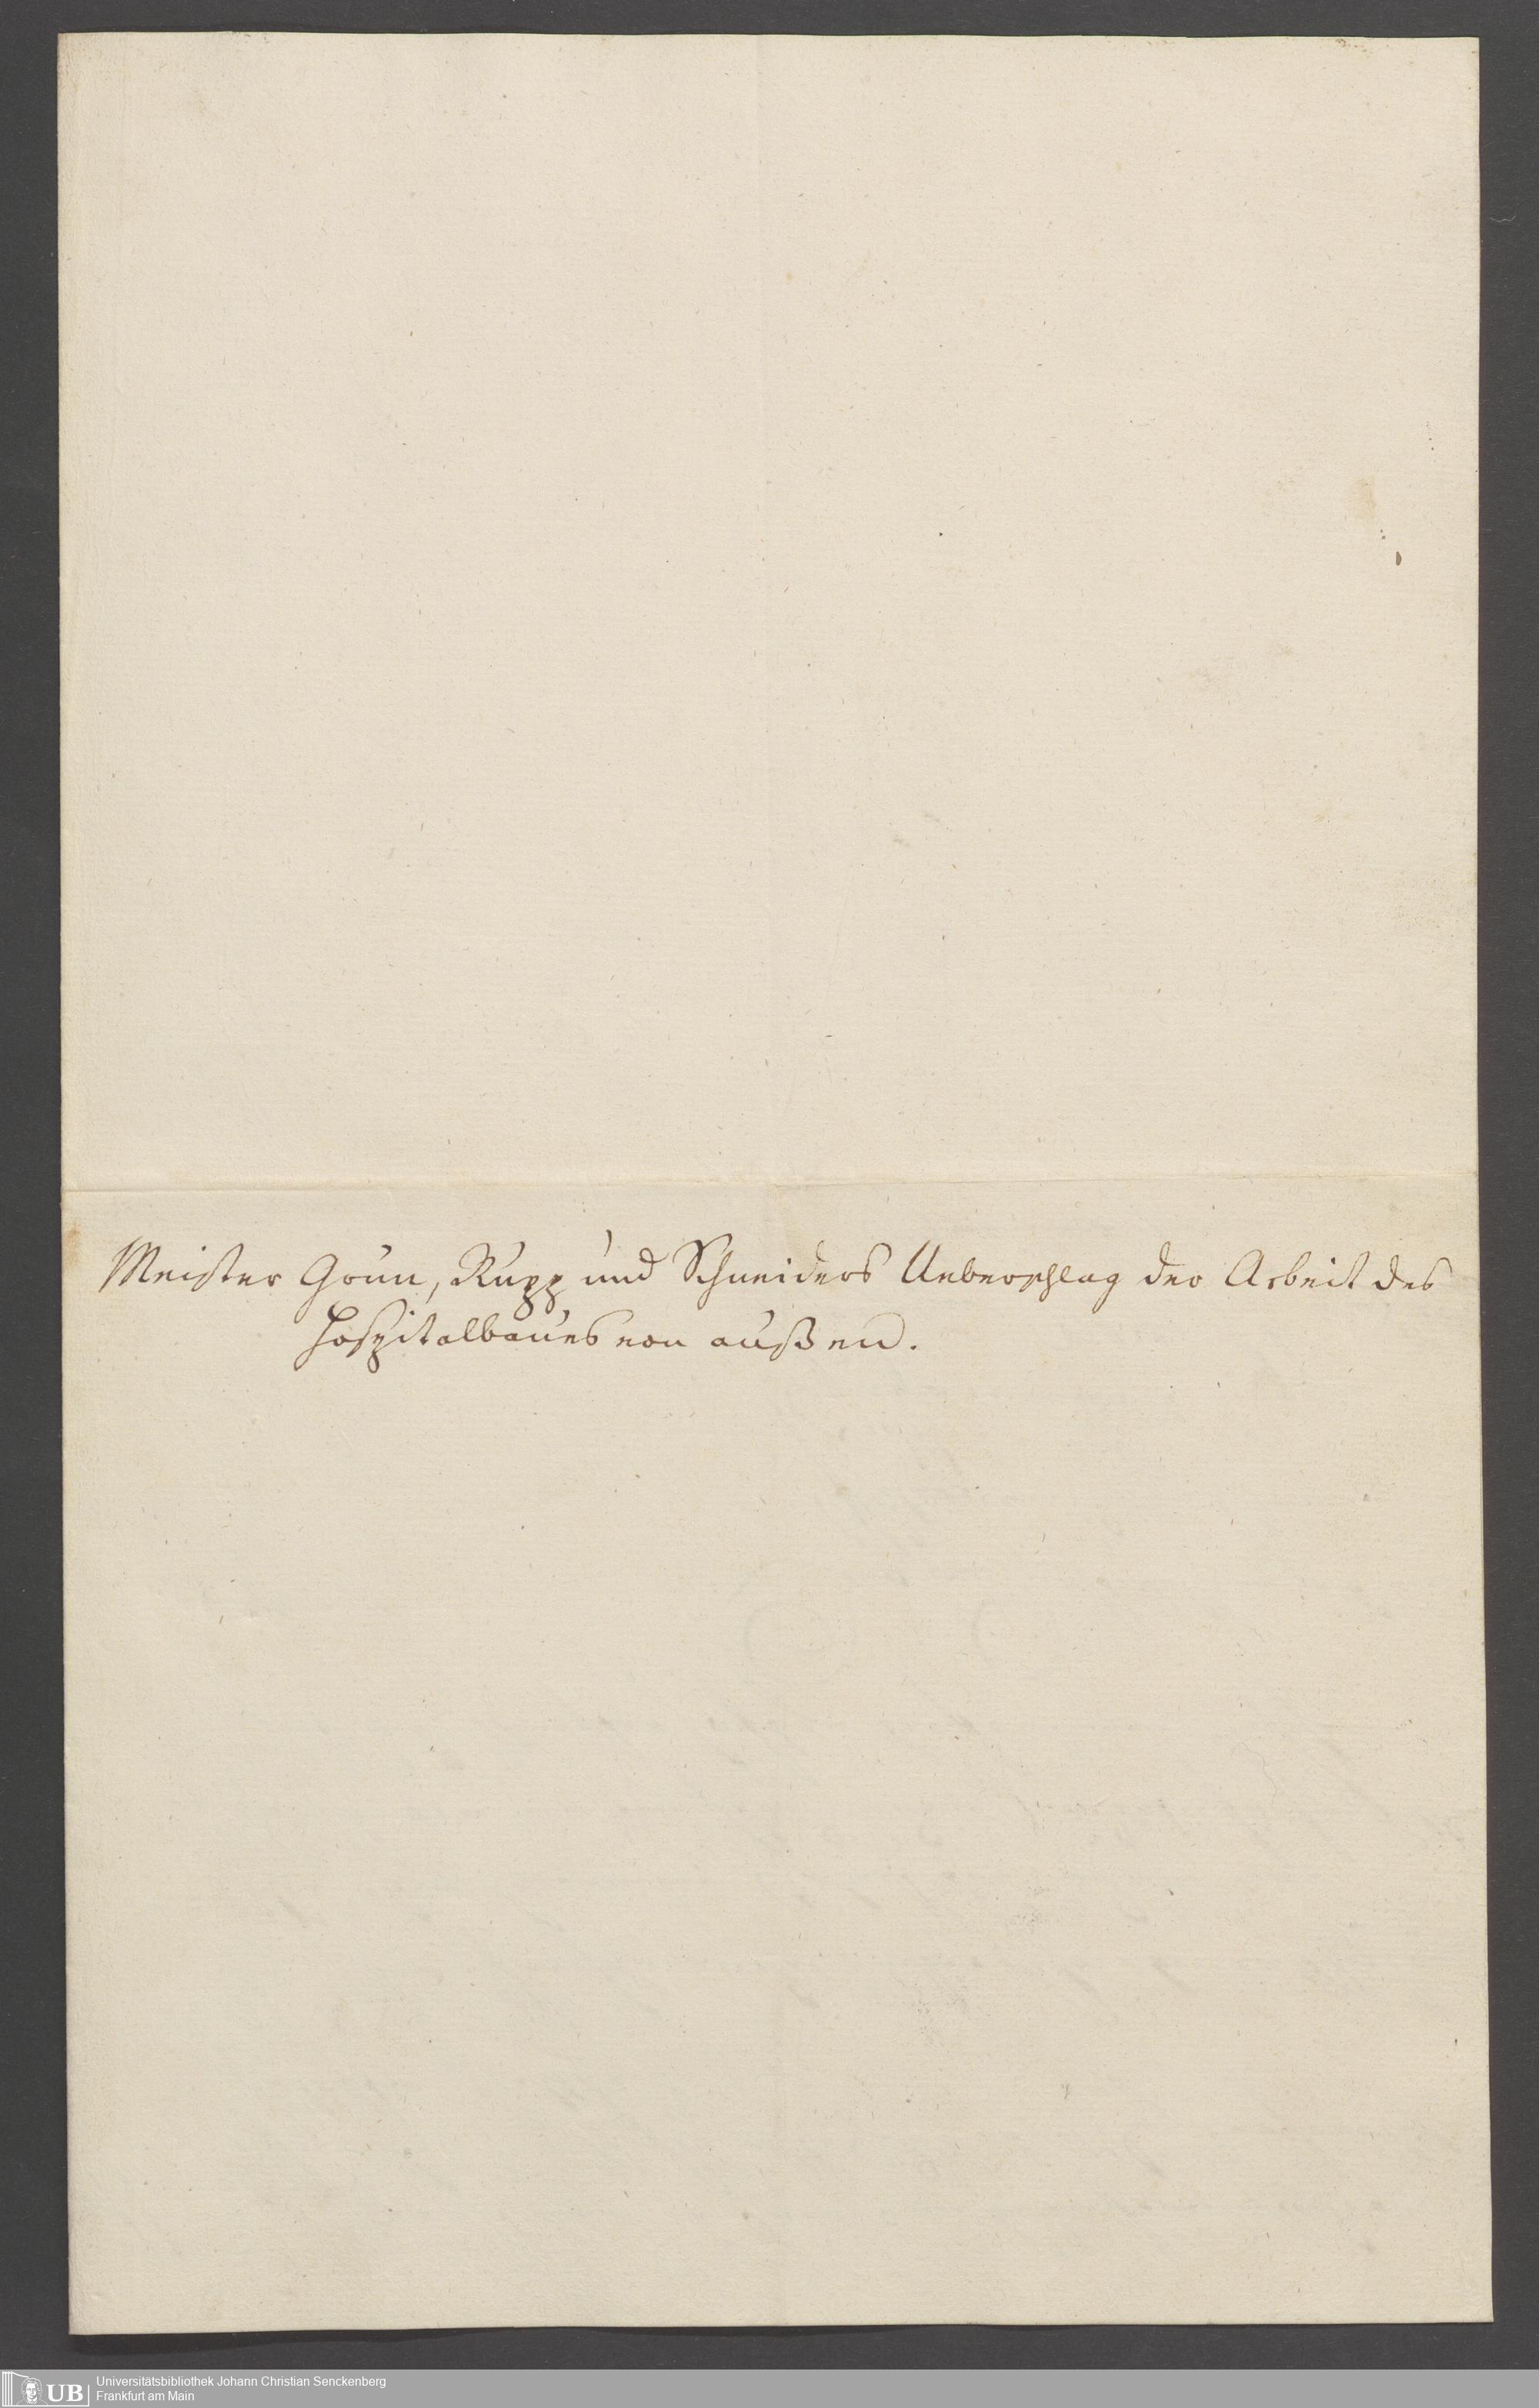 Meister Grün, Rupp und Schneiders Ueberschlag der Arbeit des
Hospitalbaues von außen.
UB
Universitätsbibliothek Johann Christian Senckenberg
Frankfurt am Main